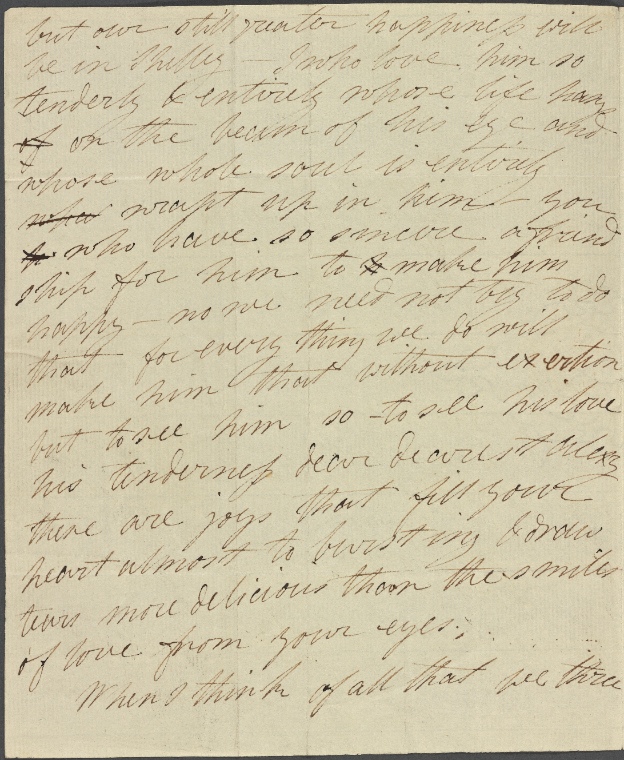 but our still greater happiness will
be in Shelley – I who love him so
tenderly & entirely whose life hangs
of on the beam of his eye and
whose whole soul is entirely
wrapt up in him – you
who have so sincere a friend
ship for him to make him
happy – no we need not try to do
that for every thing we do will
make him that without exertion
but to see him so – to see his love
his tenderness dear dearest Alexy
there are joys that fill your
heart almost to bursting & draw
tears more delicious than the smiles
of love from your eyes.
When I think of all that we three